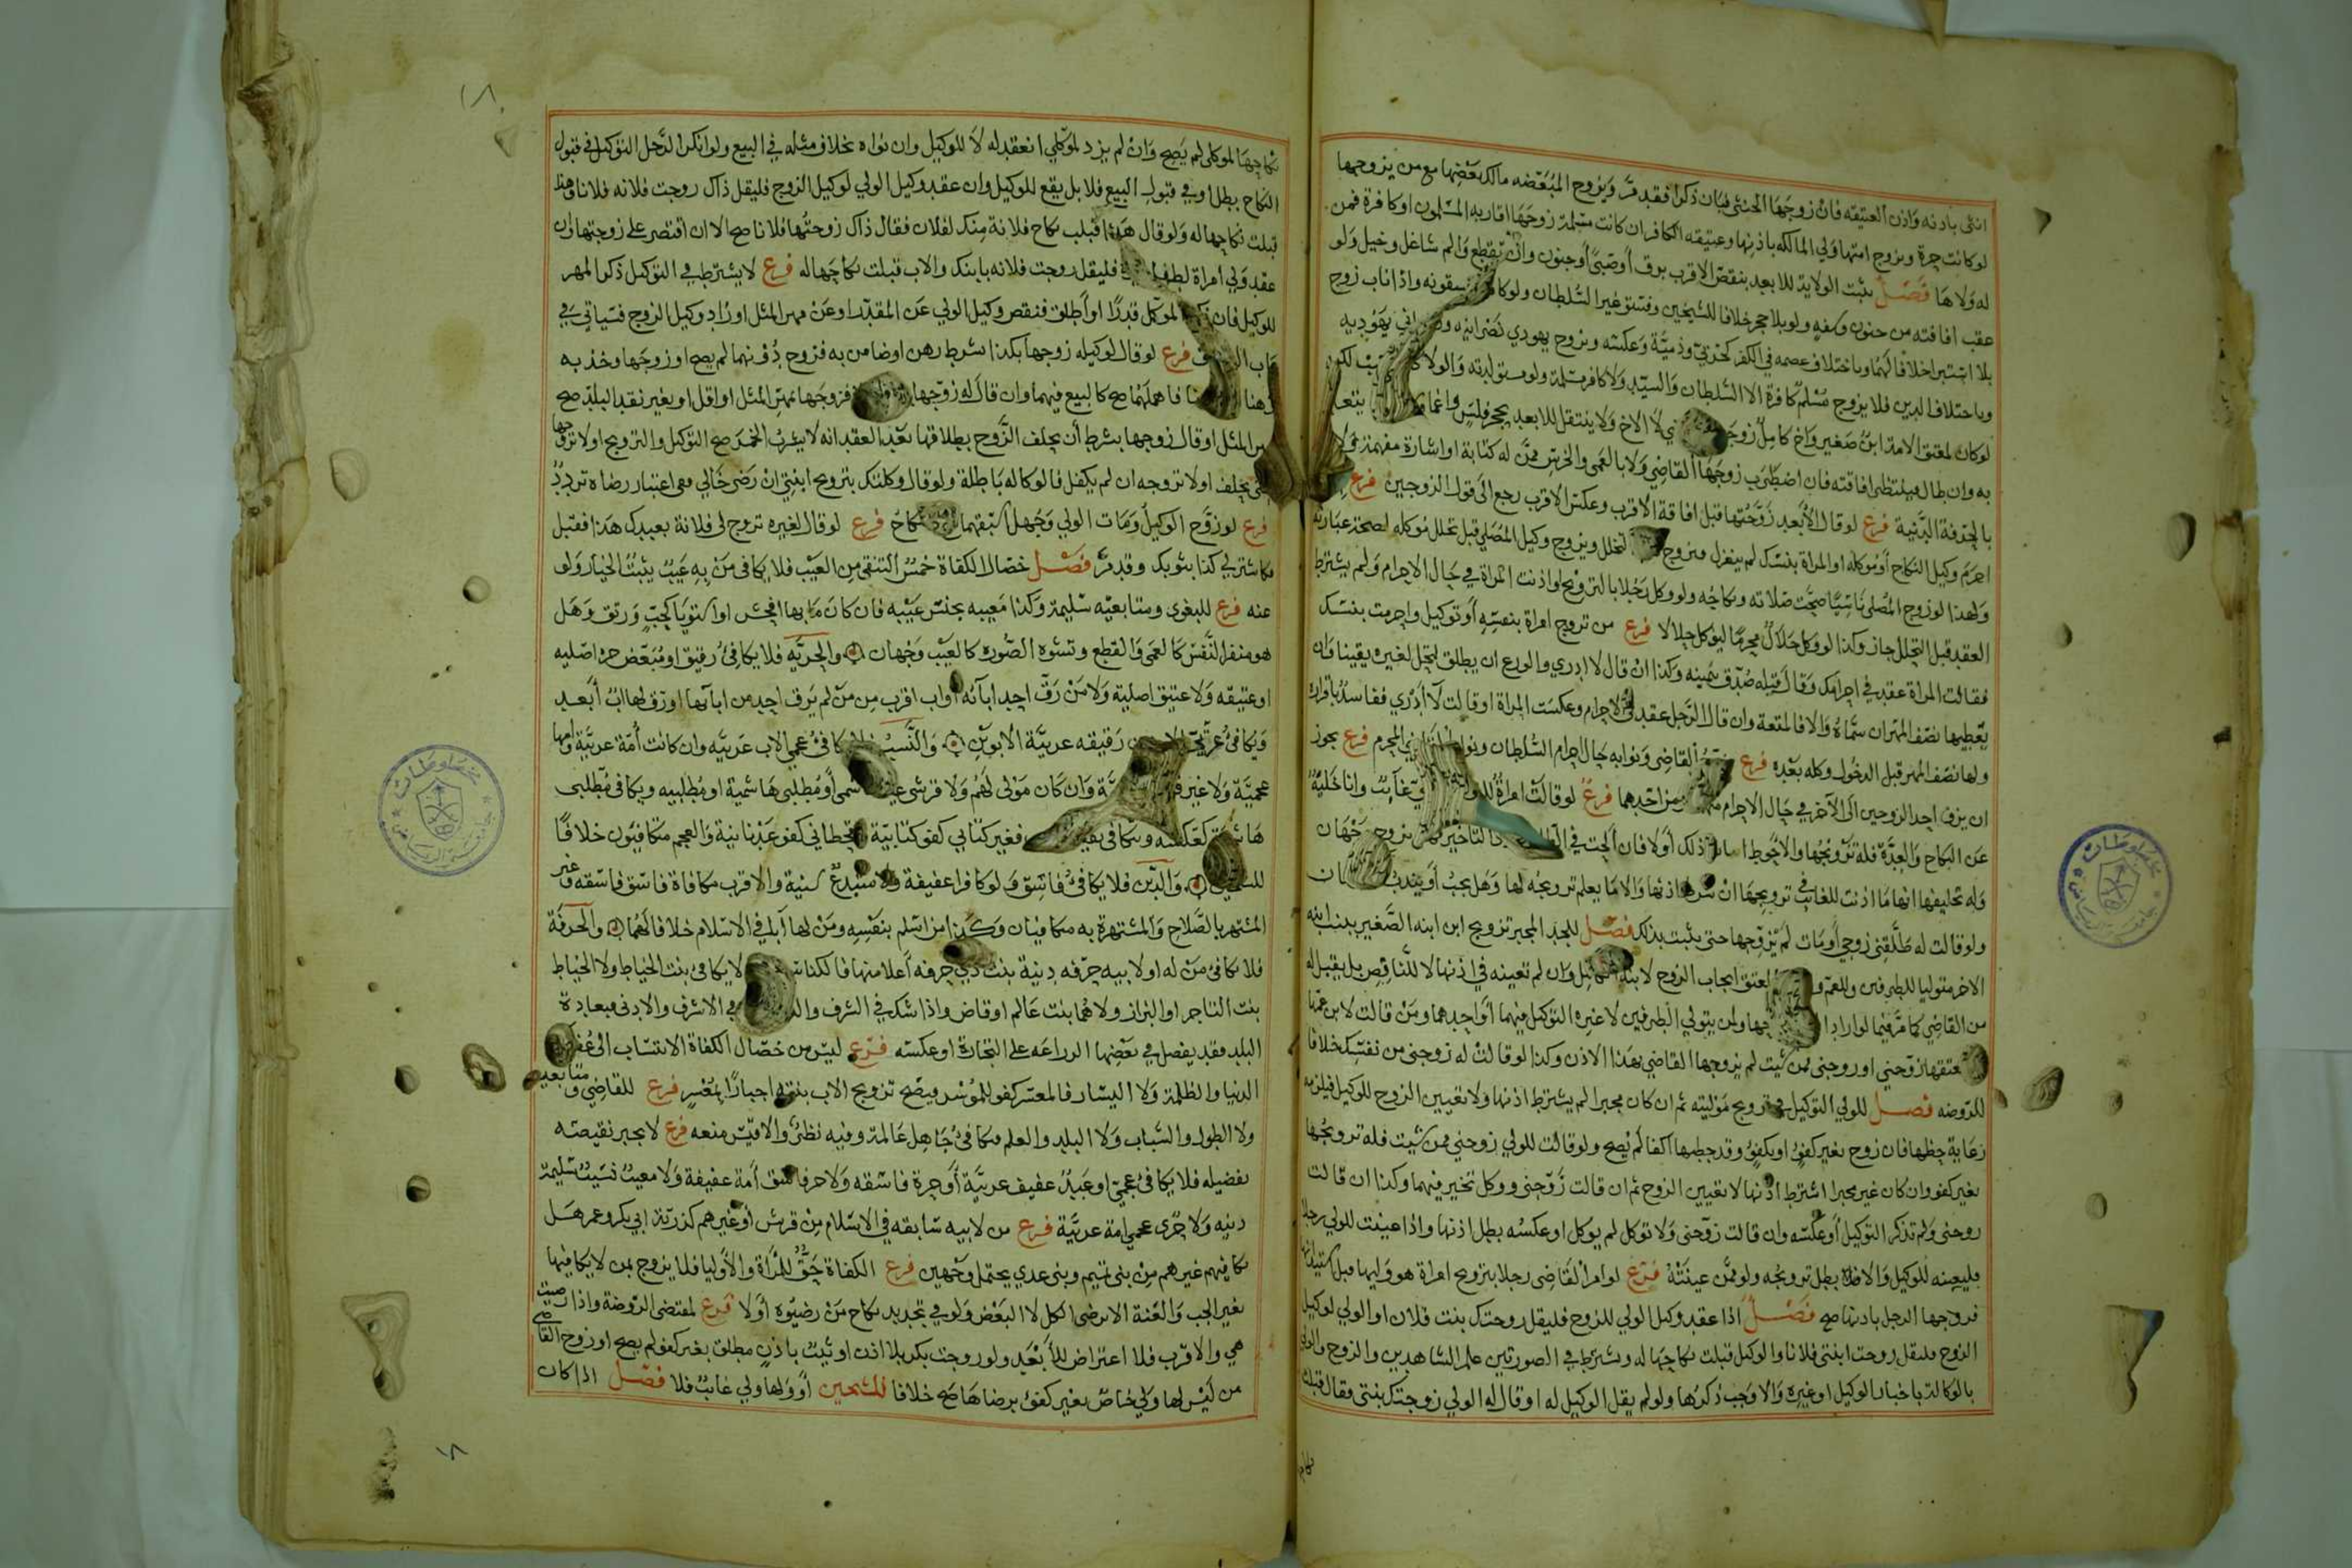 انثى باذنه واذن العتيقه فان زوجها الخنثى فبان ذكرا فقد مرّ ويزوج المبعّضه مالك بعضها مع من يزوجها
لو كانت حرة ويزوج امتها ولي المالكه باذنها وعتيقه الكافر ان كانت مسلمة زوجها اقاربه المسلمون او كافرة فمن
له ولاها فصل يثبت الولاية للابعد بنقص الاقرب برق أو صبيً أو جنون وان تقطع والم شاغل وخبل ولو
عقب افاقته من جنون وسفه ولو بلا حجر خلافا للشيخين وفسق غير السلطان ولو كان يسقونه واذا تاب زوج
بلا استبرا خلافا لهما وباختلاف عصمه في الكفر كحربي وذمية وعكسه ويزوج يهودي نصرانيه ونصراني يهوديه
وباختلاف الدين فلا يزوج مسلم كافرة الا السلطان والسيد ولا كافر مسلمة ولو مستولدته والولا
لو كان لمعتق الامة ابن صغير واخ كامل زوج لا الاخ ولا ينتقل للابعد بحجر فلس واغما
به وان طال فينتظر افاقته فان اضطرب زوجها القاضي ولا بالعمى والخرس ممن له كتابة او اشارة مفهمة ولا
بالحرفة الدنية فرع لو قال الأبعد زوجتها قبل افاقة الاقرب وعكس الاقرب رجع الى قول الزوجين فرع
احرم وكيل النكاح أو موكله او المراة بنسك لم ينعزل فيزوج التحلل ويزوج وكيل المصلي قبل تحلل موكله لصحة عبارته
ولهذا لو زوج المصلي ناسيا صحت صلاته ونكاحه ولو وكل رجلا بالتزويج واذنت المراة في حال الاحرام ولم يشترط
العقد قبل التحلل جاز وكذا لو وكل حلال محرما ليوكل حلالا فرع من تزوج امراة بنفسه أو توكيل واحرمت بنسك
فقالت المراة عقد في احرامك وقال قبله صدق بيمينه وكذا ان قال لا ادري والورع ان يطلق لتحل لغيره يقينا وان
يعطيها نصف المهر ان سماه والا فالمتعة وان قال الرجل عقد في الاحرام وعكست المراة او قالت لا أدري ففاسد باقراره
ولها نصف المهر قبل الدخول وكله بعده فرع القاضي ونوابه حال احرام السلطان ونوابه المحرم فرع يجوز
ان يزف احد الزوجين الى الآخر في حال الاحرام من احدهما فرع لو قالت امرأة للولي غائب وانا خلية
عن النكاح والعدة فله تزويجها والاحوط اثبات ذلك أولا فان الحت في الطلب التاخير يزوج وجهان
وله تحليفها انها ما اذنت للغايب في تزويجها ان شرط اذنها والا ما يعلم تزويجه لها وهل يجب أو يندب
ولو قالت له طلقني زوجي أو مات لم يزوجها حتى يثبت بذلك فصل للجد المجبر تزويج ابن ابنه الصغير ببنت ابنه
الاخر متوليا للطرفين وللعم والمعتق ايجاب الزوج لابنه وان لم تعينه في اذنها لا للناقص بل يقبل له
من القاضي كما مر فيما لو اراد وان يتولي الطرفين لا غيره التوكيل فيهما أو احدهما ومن قالت لابن عمها
معتقها زوجني او زوجني ممن شئت لم يزوجها القاضي بهذا الاذن وكذا لو قالت له زوجني من نفسك خلافا
للروضه فصل للولي التوكيل في تزويج موليته ثم ان كان مجبرا لم يشترط اذنها ولا تعيين الزوج للوكيل فيلزمه
رعاية حظها فان زوج بغير كفؤ او بكفؤ وقد خطبها اكفا لم يصح ولو قالت للولي زوجني ممن شئت فله تزويجها
بغير كفو وان كان غير مجبر اشترط اذنها لا تعيين الزوج ثم ان قالت زوجني ووكل تخير فيهما وكذا ان قالت
زوجني ولم تذكر التوكيل أو عكسه وان قالت زوجني ولا توكل لم يوكل او عكسه بطل اذنها واذا عينت للولي رجلا
فليعينه للوكيل والا بطل تزويجه ولو ممن عينته فرع لو امر القاضي رجلا بتزويج امراة هو وليها قبل استيذانها
فزوجها الرجل باذنها صح فصل اذا عقد وكيل الولي للزوج فليقل زوجتك بنت فلان او الولي لوكيل
الزوج فليقل زوجت ابنتي فلانا والوكيل قبلت نكاحها له ويشترط في الصورتين علم الشاهدين والزوج والولي
بالوكالة باخبار الوكيل او غيره والاوجب ذكرها ولو لم يقل الوكيل له او قال له الولي زوجتك بنتي فقال قبلت
نكاحها لموكلي لم يصح وان لم يزد لموكلي انعقد له لا للوكيل وان نواه بخلاف مثله في البيع ولو انكر الرجل التوكيل في قبول
النكاح بطل او في قبول البيع فلا بل يقع للوكيل وان عقد وكيل الولي لوكيل الزوج فليقل ذاك زوجت فلانه فلانا وهذا
قبلت نكاحها له ولو قال هذا قبلت نكاح فلانة منك لفلان فقال ذاك زوجتها فلانا صح الا ان اقتصر على زوجتها وان
عقد ولي امراة لطفل فليقل زوجت فلانه بابنك والاب قبلت نكاحها له فرع لا يشترط في التوكيل ذكر المهر
للوكيل فان الموكل قدرا أو أطلق فنقص وكيل الولي عن المقدر او عن مهر المثل او زاد وكيل الزوج فسياتي في
باب فرع لو قال لوكيله زوجها بكذا بشرط رهن او ضامن به فزوج دونهما لم يصح او زوجها وخذ به
رهنا فاهملهما صح كالبيع فيهما وان قال له زوجها فزوجها بمهر المثل او اقل او بغير نقد البلد صح
بمهر المثل او قال زوجها بشرط أن يحلف الزوج بطلاقها بعد العقد انه لا يشرب الخمر صح التوكيل والتزويج او لا تزوجها
حتى يحلف او لا تزوجه ان لم يكفل فالوكاله باطلة ولو قال وكلتك بتزويج ابنتي ان رضي خالي ففي اعتبار رضاه تردد
فرع لو زوج الوكيل ومات الولي وجهل اسبقهما نكاح فرع لو قال لغيره تزوج لي فلانة بعبدك هذا فقبل
فكاشتر لي كذا بثوبك وقد مر فصل خصال الكفاة خمس التنقى من العيب فلا يكافي من به عيب يثبت الخيار ولو
عنه فرع للبغوي ومتابعيه سليمة وكذا معيبه بجنس عيبه فان كان ما بها افحش او استويا كجب ورتق وهل
هو منفر النفس كالعمى والقطع وتشوه الصوره كالعيب وجهان والحريّه فلا يكافئ رقيق او مبعض حرة اصليه
او عتيقه ولا عتيق اصلية ولا من رق احد ابآئه او اب اقرب من من لم يرق احد من ابآئها او رق لها اب أبعد
ويكافئ عربي رقيقه عربيّة الابوين والنسب فلا يكافئ عجمي الاب عربيه وان كانت أمه عربية وامها
عجمية ولا غير وان كان مولى لهم ولا قرشي غير هاشمي أو مطلبي هاشمية او مطلبيه ويكافي مطلبى
هاشمية كعكسه ويتكافى بقية فغير كناني كفو كنانية وقحطاني كفو عدنانية والعجم متكافئون خلافًا
للشيخين والدين فلا يكافئ فاسق ولو كافرا عفيفة ولا مبتدع سنية والاقرب مكافاة فاسق فاسقه وغير
المشتهر بالصلاح والمشتهرة به متكافيان وكذا من اسلم بنفسه ومن لها آبا في الاسلام خلافا لهما والحرفة
فلا يكافئ من له او لابيه حرفه دنية بنت ذي حرفه أعلا منها فالكناس لا يكافئ بنت الخياط ولا الخياط
بنت التاجر او البزاز ولا هما بنت عالم او قاض واذا شك في الشرف والدناة في الاشرف والادنى فبعادة
البلد فقد يفضل في بعضها الزراعه على التجارة او عكسه فرع ليس من خصال الكفاة الانتساب الى عظما
الدنيا والظلمة ولا اليسار فالمعسر كفو للموسر فيصح تزويج الاب بنته اجبارًا بمعسر فرع للقاضي ومتابعيه
ولا الطول والشباب ولا البلد والعلم فيكافئ جاهل عالمة وفيه نظر والاقيس منعه فرع لا يجبر نقيصته
بفضيله فلا يكافئ عجمي او عبد عفيف عربيّة أو حرة فاسقه ولا حر فاسق أمة عفيفة ولا معيب نسيب سليمة
دنيه ولا حرّ عجمي امة عربيّة فرع من لابيه سابقه في الاسلام من قريش أو غيرهم كذرية ابي بكر وعمر هل
يكافيهم غيرهم من بني تيم وبني عدي يحتمل وجهين فرع الكفاة حق للمراة والاوليا فلا يزوج بمن لا يكافيها
بغير الجب والعنة الا برضى الكل لا البعض ولو في تجديد نكاح من رضيوه أولا فرع لمقتضى الروضة واذا رضيت
هي والاقرب فلا اعتراض للأبعد ولو زوجت بكر بلا اذن او ثيب باذن مطلق بغير كفو لم يصح او زوج القاضي
من ليس لها ولي خاص بغير كفئ برضاها صح خلافا للشيخين أو ولها ولي غائب فلا فصل اذا كان